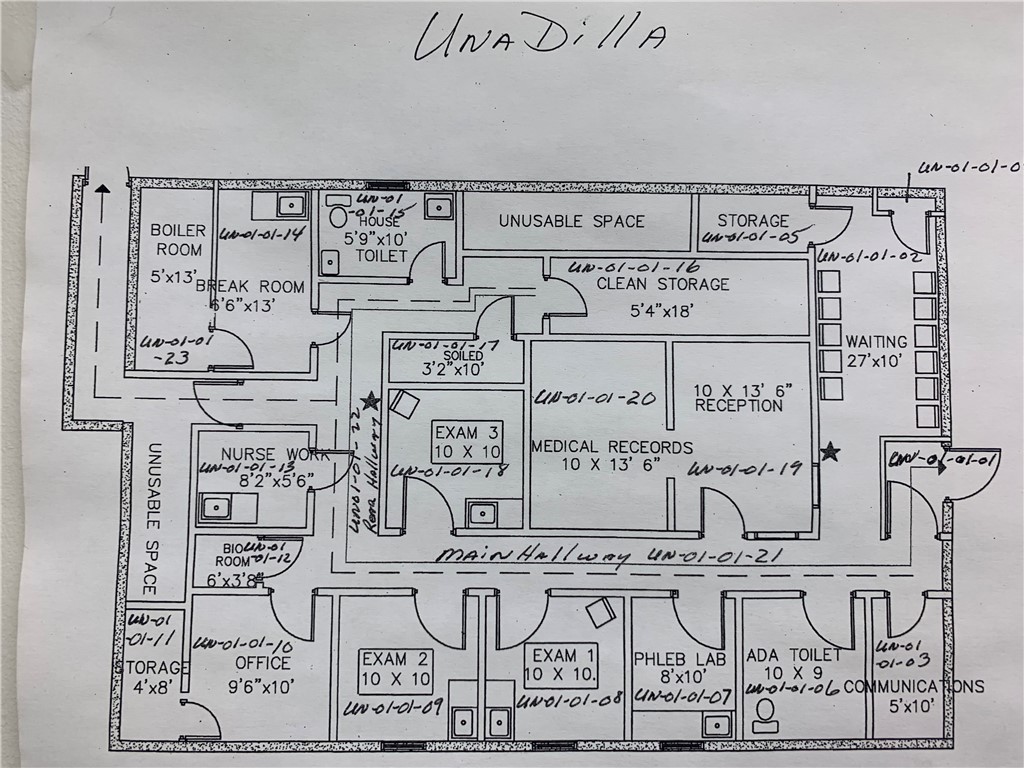 UNADillA
UN-01-01-0
UN-01
-01-15
HOUSE
5'9"x10'
TOILET
UNUSABLE SPACE
STORAGE
UN-01-01-05
BOILER
ROOM
5'x13'
UN-01-01-14
BREAK ROOM
6'6"x13'
UN-01-01-02
UN-01-01-16
CLEAN STORAGE
5'4"x18'
UN-01-01
-23
UN-01-01-17
SOILED
3'2"x10'
WAITING
27'x10'
10 X 13' 6"
RECEPTION
UN-01-01-20
MEDICAL RECEORDS
10 X 13' 6"
UN-01-01-19
EXAM 3
10 X 10
UN-01-01-18
UN-01-01-22
Rear Hallway
NURSE WORK
UN-01-01-13
8'2"x5'6"
UN-01-01-01
UNUSABLE SPACE
BIO
ROOM
UN-01
-01-12
6'x3'8
MAIN HAllwAY UN-01-01-21
UN-01
-01-11
TORAGE
4'x8'
UN-01-01-10
OFFICE
9'6"x10'
EXAM 2
10 X 10
UN-01-01-09
EXAM 1
10 X 10.
UN-01-01-08
PHLEB LAB
8'x10'
UN-01-01-07
ADA TOILET
10 X 9
UN-01-01-06
UN-01
-01-03
COMMUNICATIONS
5'x10'